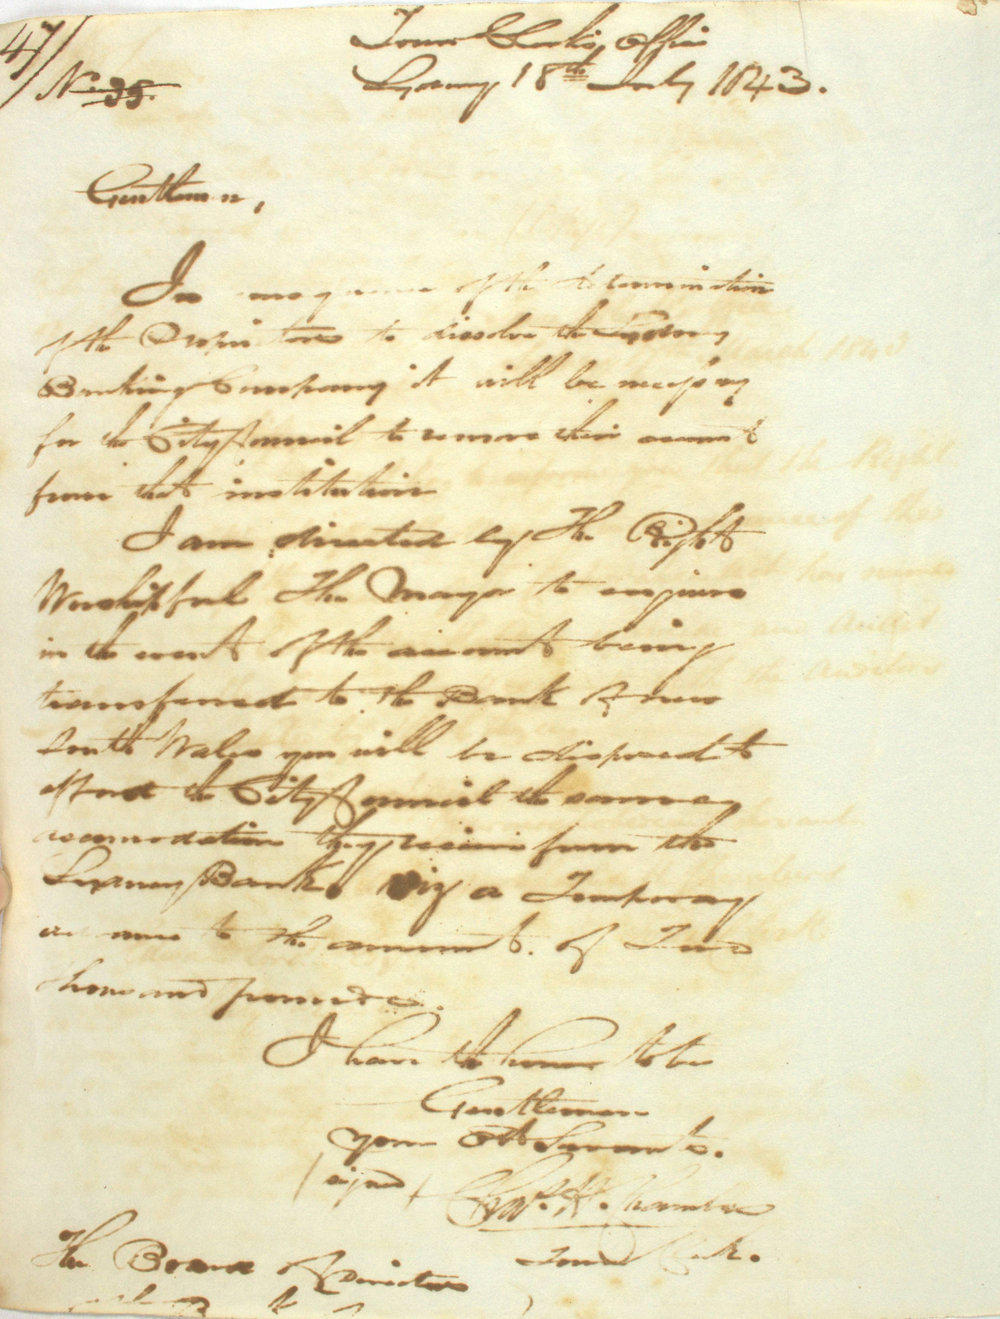 47/
No 35.
Town Clerk's Office
Sydney 18th July 1843.
Gentlemen,
In consequence of the determination
of the Proprietors to dissolve the Sydney
Banking Company it will be necessary
for the City Council to remove their account
from that institution
I am directed by The Right
Worshipful The Mayor to enquire
in the event of the account being
transferred to the Bank of New
South Wales you will be disposed to
afford the City Council the same
accomodation they receive from the
Sydney Bank. Viz a Temporary
advance to the amount. of Two
thousand pounds.
I have the honor to be
Gentlemen
your Obt Servant.
(signed) Chas. H. Chambers
Town Clerk.
The Board of Directors